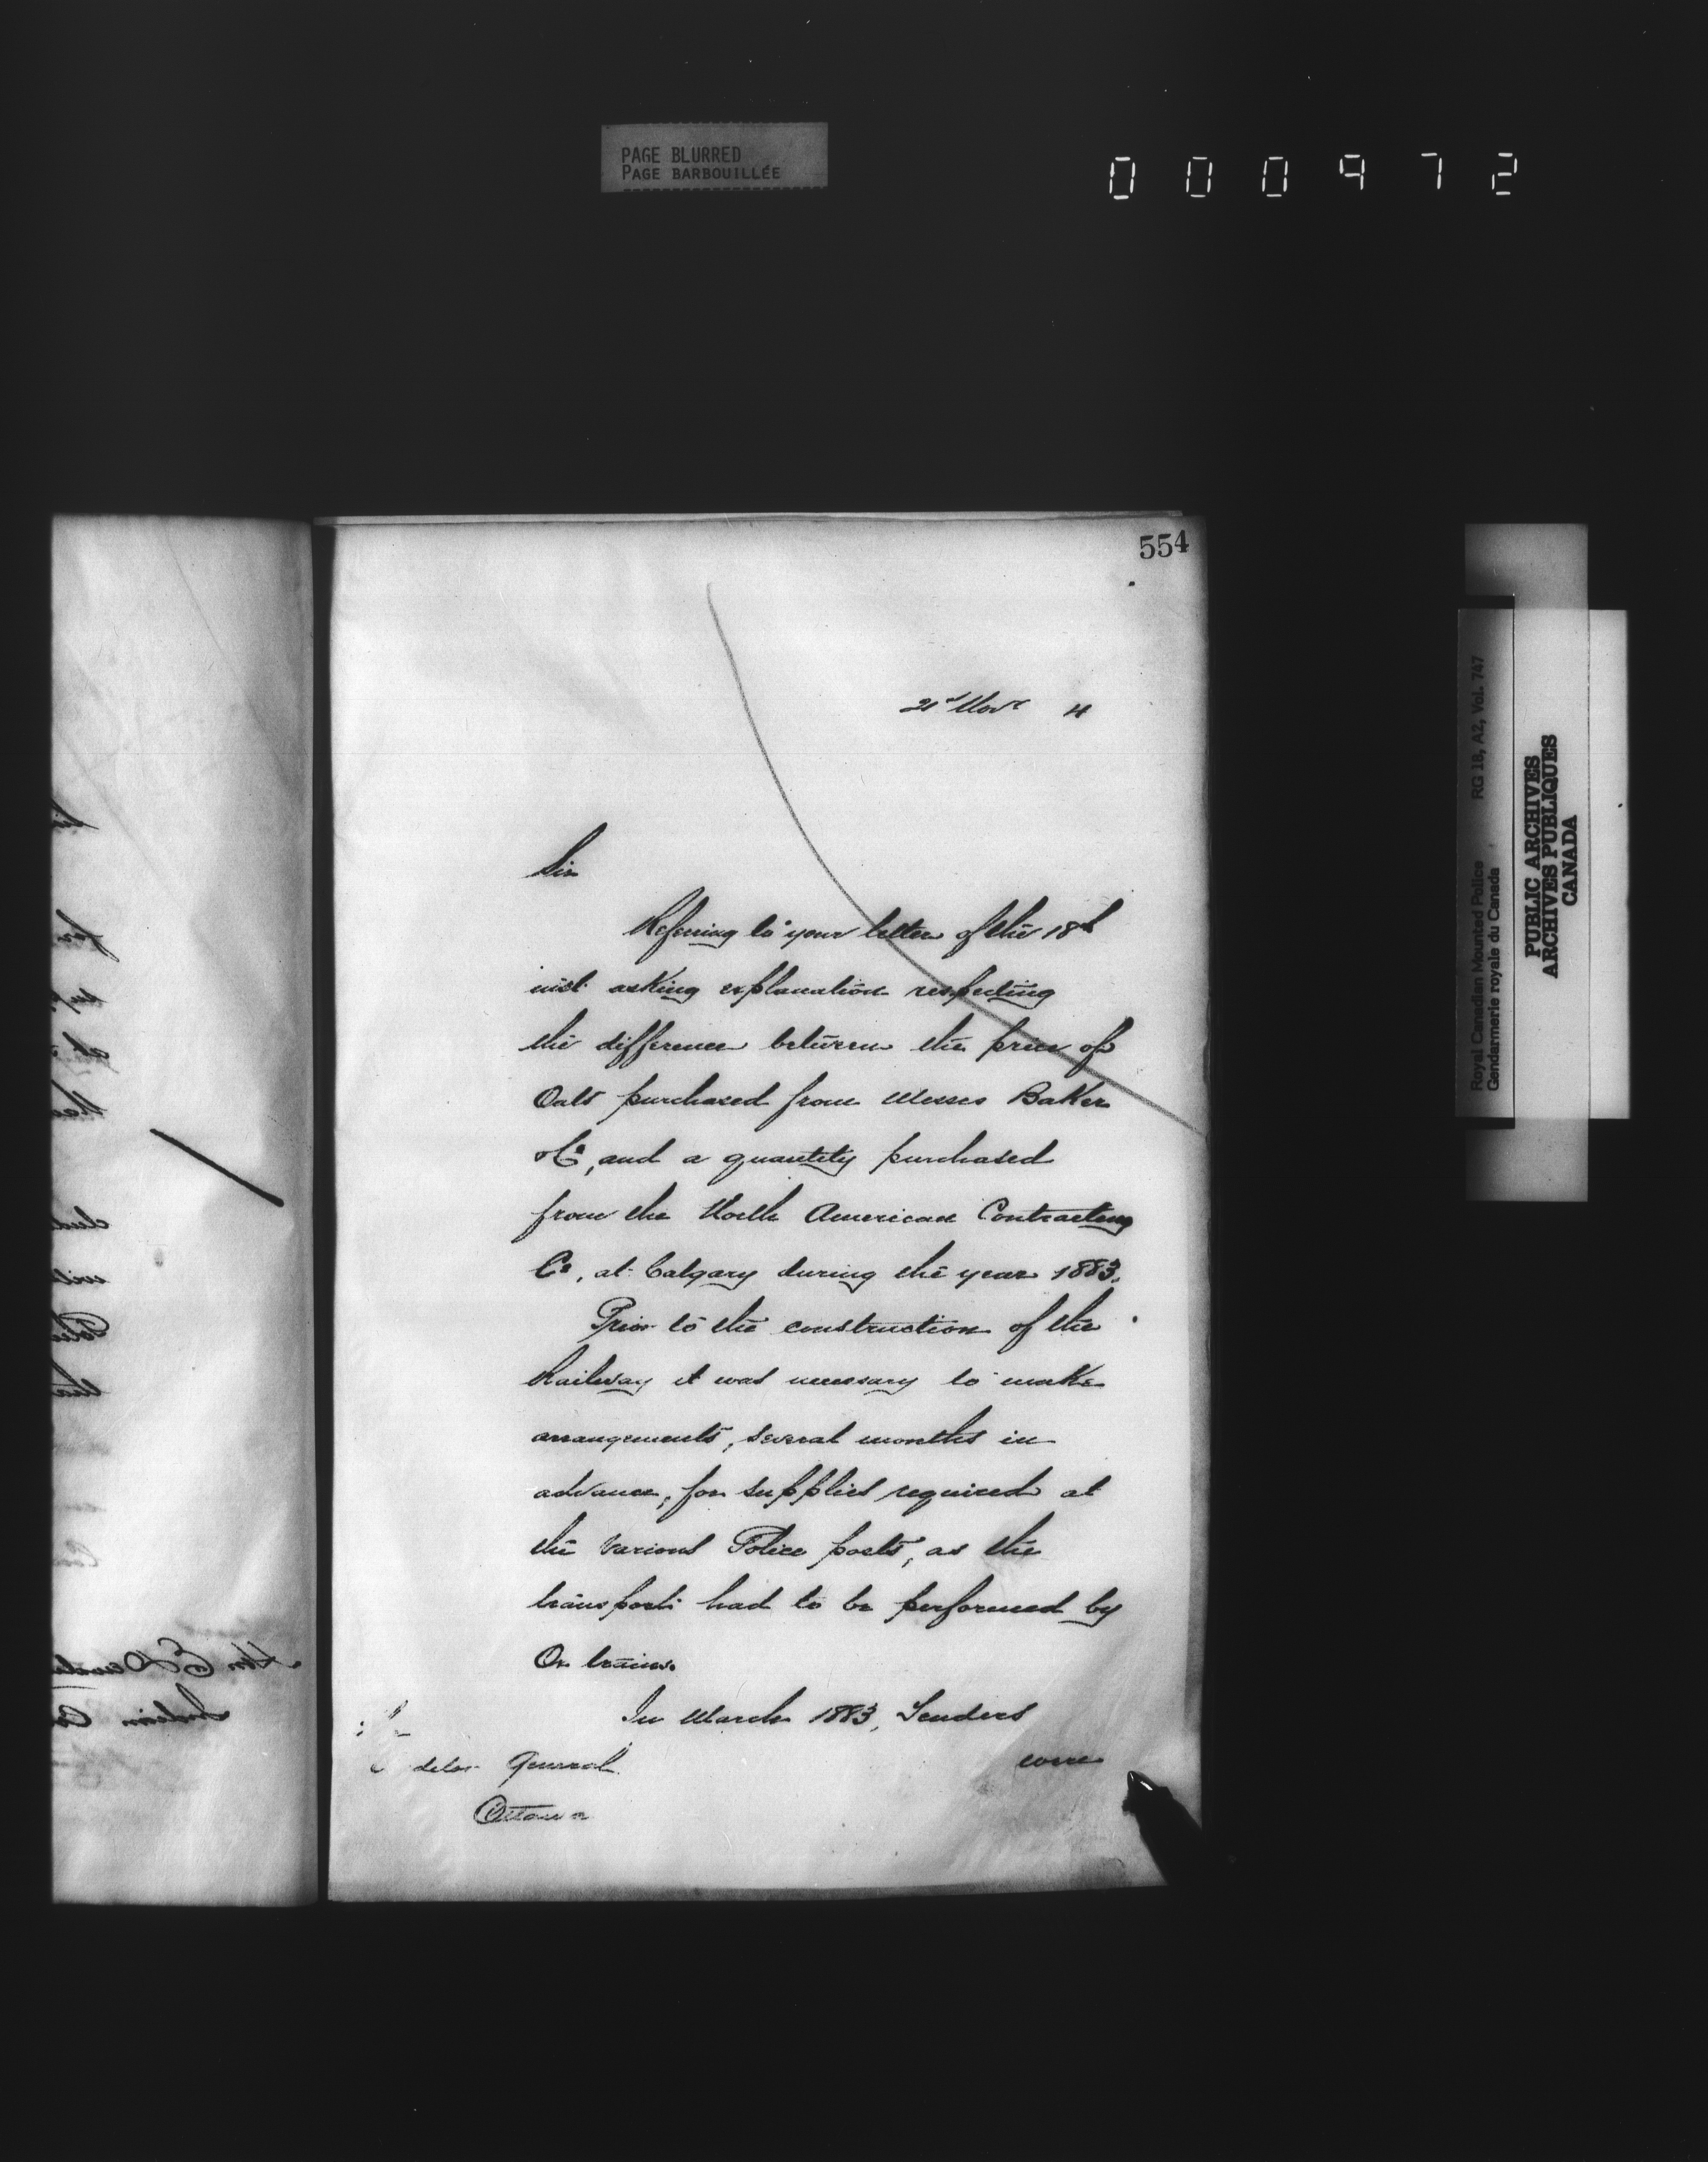 PAGE BLURRED
PAGE BARBOUILLÉE
000972
554
21st Novr 4
Sir
Referring to your letter of the 18th
inst. asking explanation respecting
the difference between the price of
Oats purchased from Messrs Baker
& Co, and a quantity purchased
from the North American Contracting
Co, at Calgary during the year 1883.
Prior to the construction of the
Railway it was necessary to make
arrangements, several months in
advance, for supplies required at
the various Police posts, as the
transport had to be performed by
Ox trains.
In March 1883, Tenders
were
General
Ottawa
Royal Canadian Mounted Police RG 18, A2, Vol. 747
Gendarmerie royale du Canada
PUBLIC ARCHIVES
ARCHIVES PUBLIQUES
CANADA